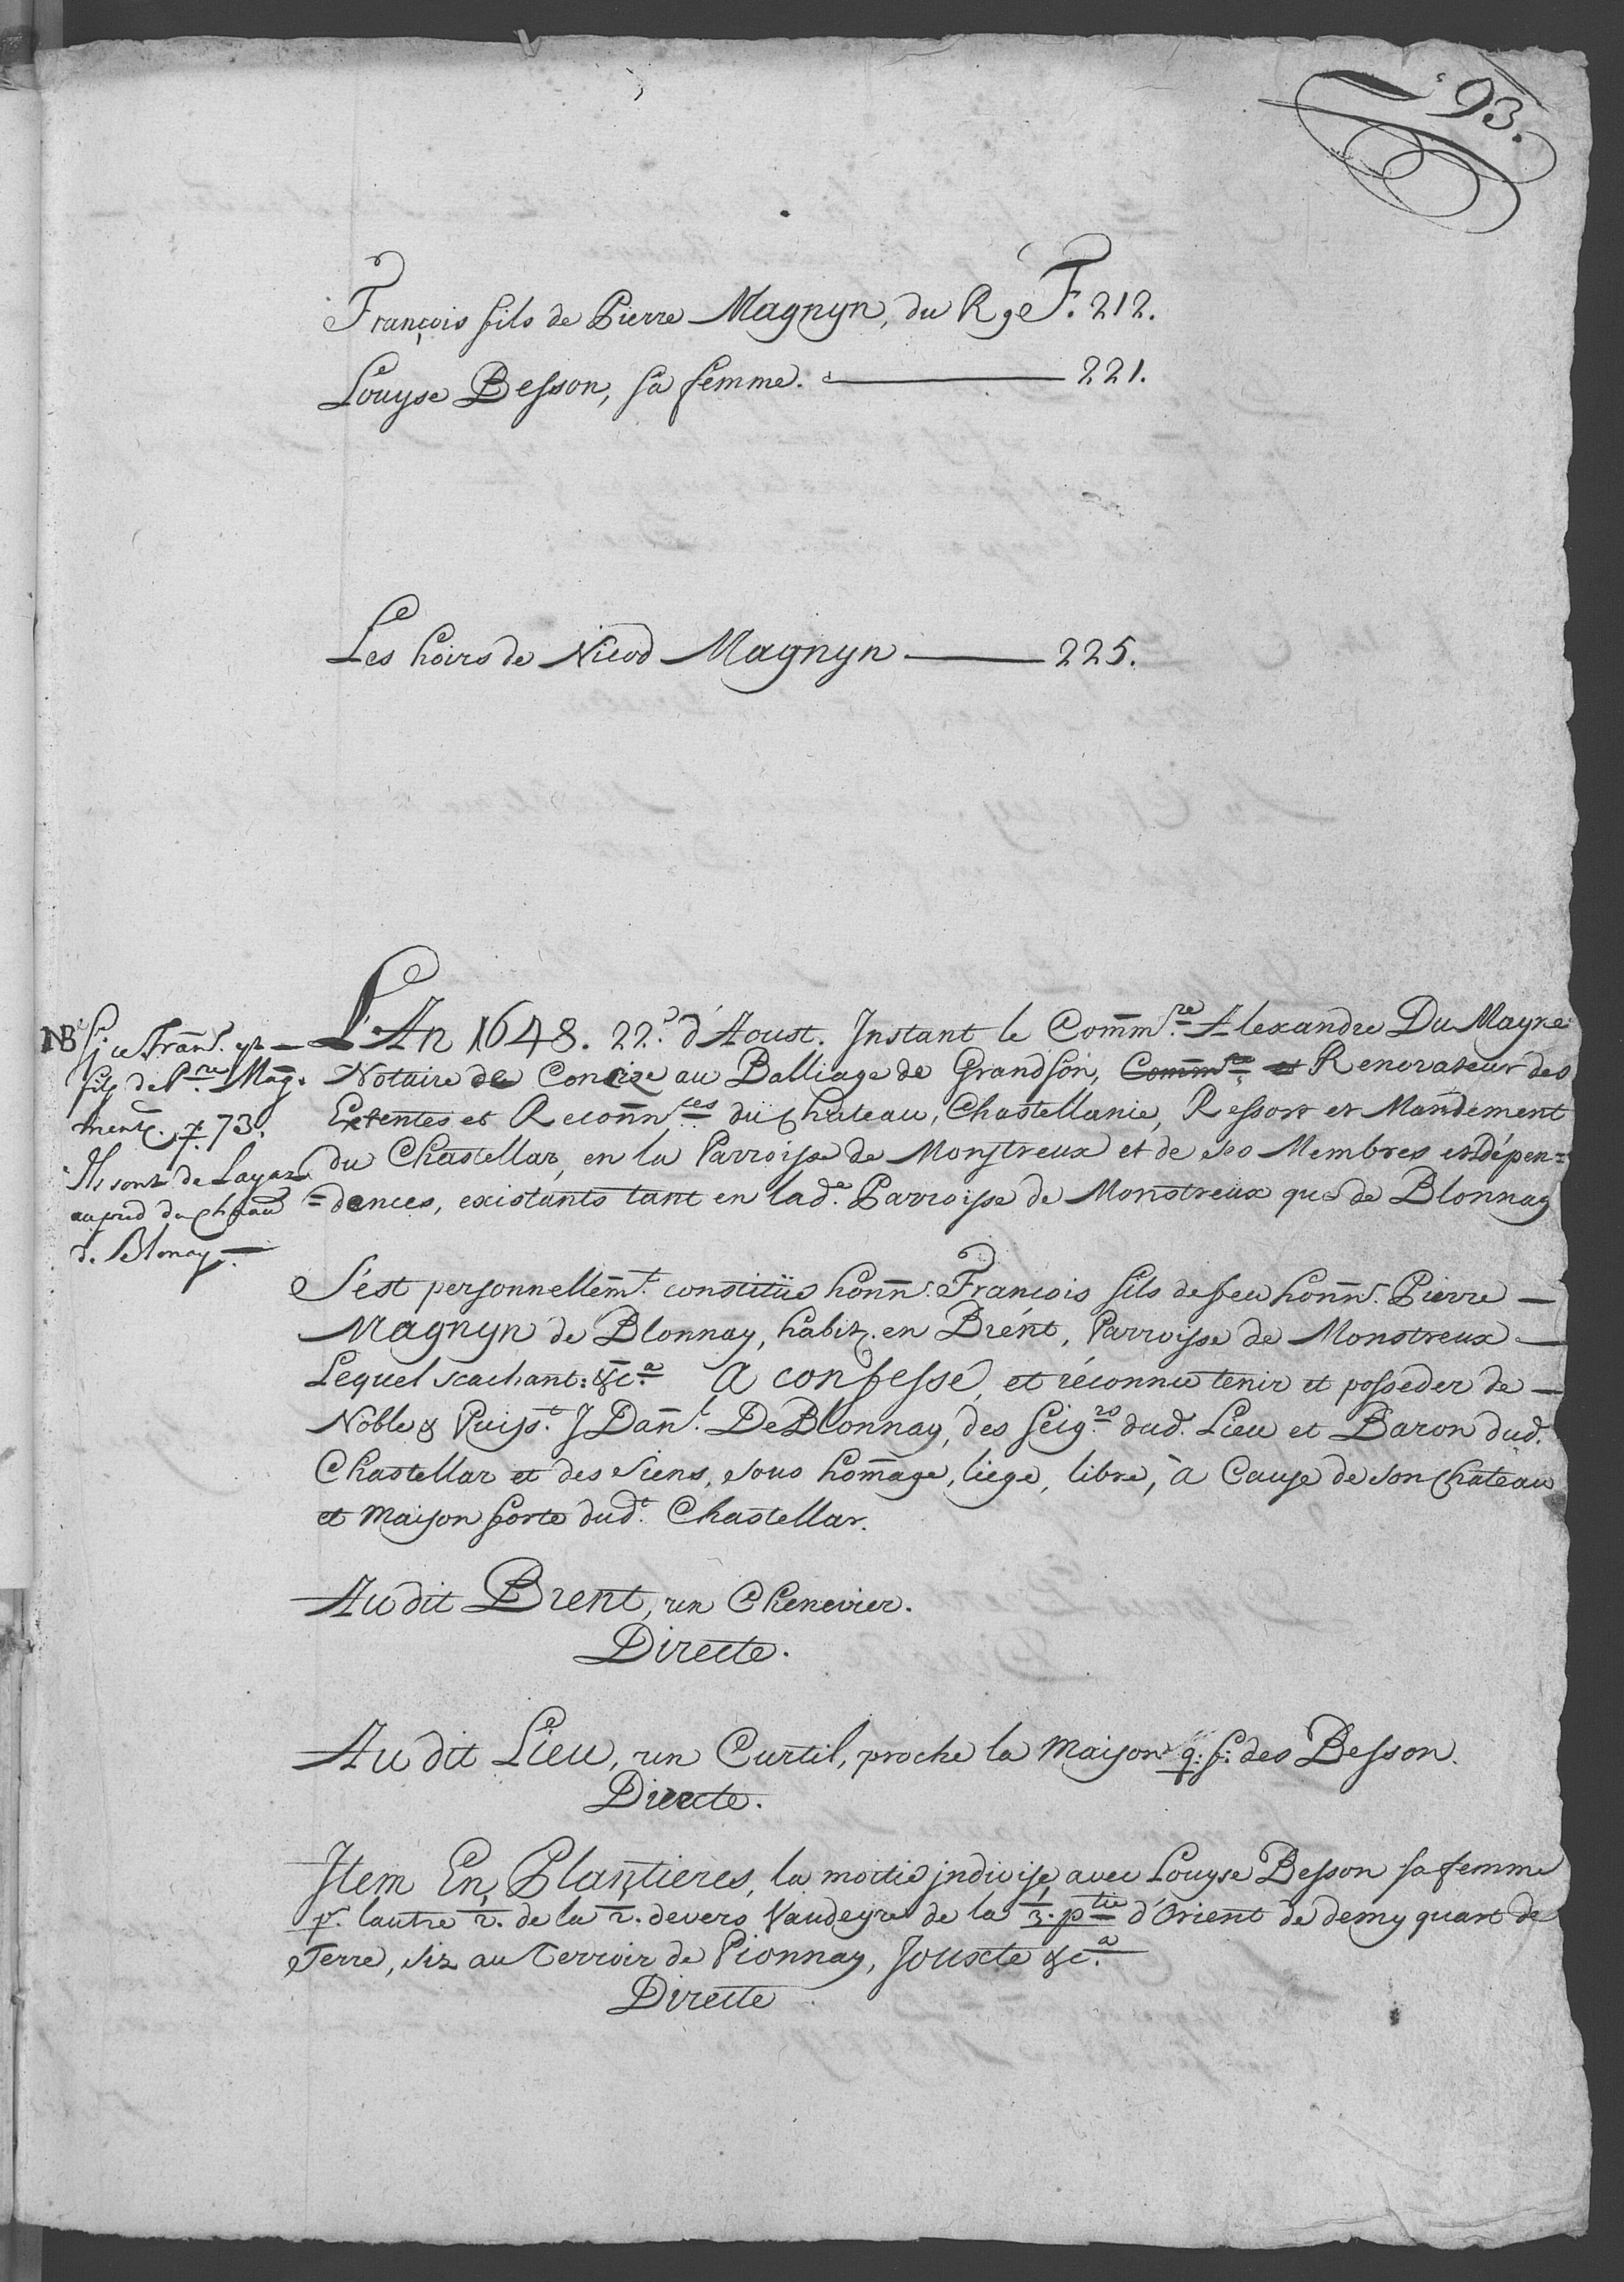 93.
François fils de Pierre Magnyn, du R ge F. 212.
Louyse Besson, sa femme. ——— 221.
Les hoirs de Nicod Magnyn ——— 225.
NB Si ce Fran.s est
fils de P.re Mag.
ment. p. 73.
Ils sont de Layaz
au pied du Chateau
d. Blonay.
L'An 1648. 22.e d'Aoust. Instant le Comm.re Alexandre Du Mayne
Notaire de Concize au Balliage de Grandson, Comm.re et Renovateur des
Extentes et Reconn.ces du Chateau, Chastellanie, Ressort et Mandement
du Chastellar, en la Parroisse de Monstreux et de ses Membres et dépen=
=dances, existants tant en lad.e Parroisse de Monstreux que de Blonnay
S'est personnellem.t constitüé honn. François fils de feu honn. Pierre —
Magnyn de Blonnay, habit. en Brént, Parroisse de Monstreux —
Lequel scachant: &c.a A confessé, et réconnu tenir et posseder de —
Noble & Puiss.t J Dan.l De Blonnay, des Seig.rs dud. Lieu et Baron dud.
Chastellar et des siens, sous homage, liege, libre, à Cause de son Chateau
et maison forte dud.t Chastellar.
Au dit Brent, un Chenevier.
Directe.
Au dit Lieu, un Curtil, proche la maison q: f: des Besson.
Directe.
Item En Plantieres, la moitié jndivise avec Louyse Besson sa femme
p.r lautre 2. de la 2. devers Vaudeyre de la 3. p.tie d'Orient de demy quart de
Terre, siz au Terroir de Pionnay, Jouxte &c.a
Directe